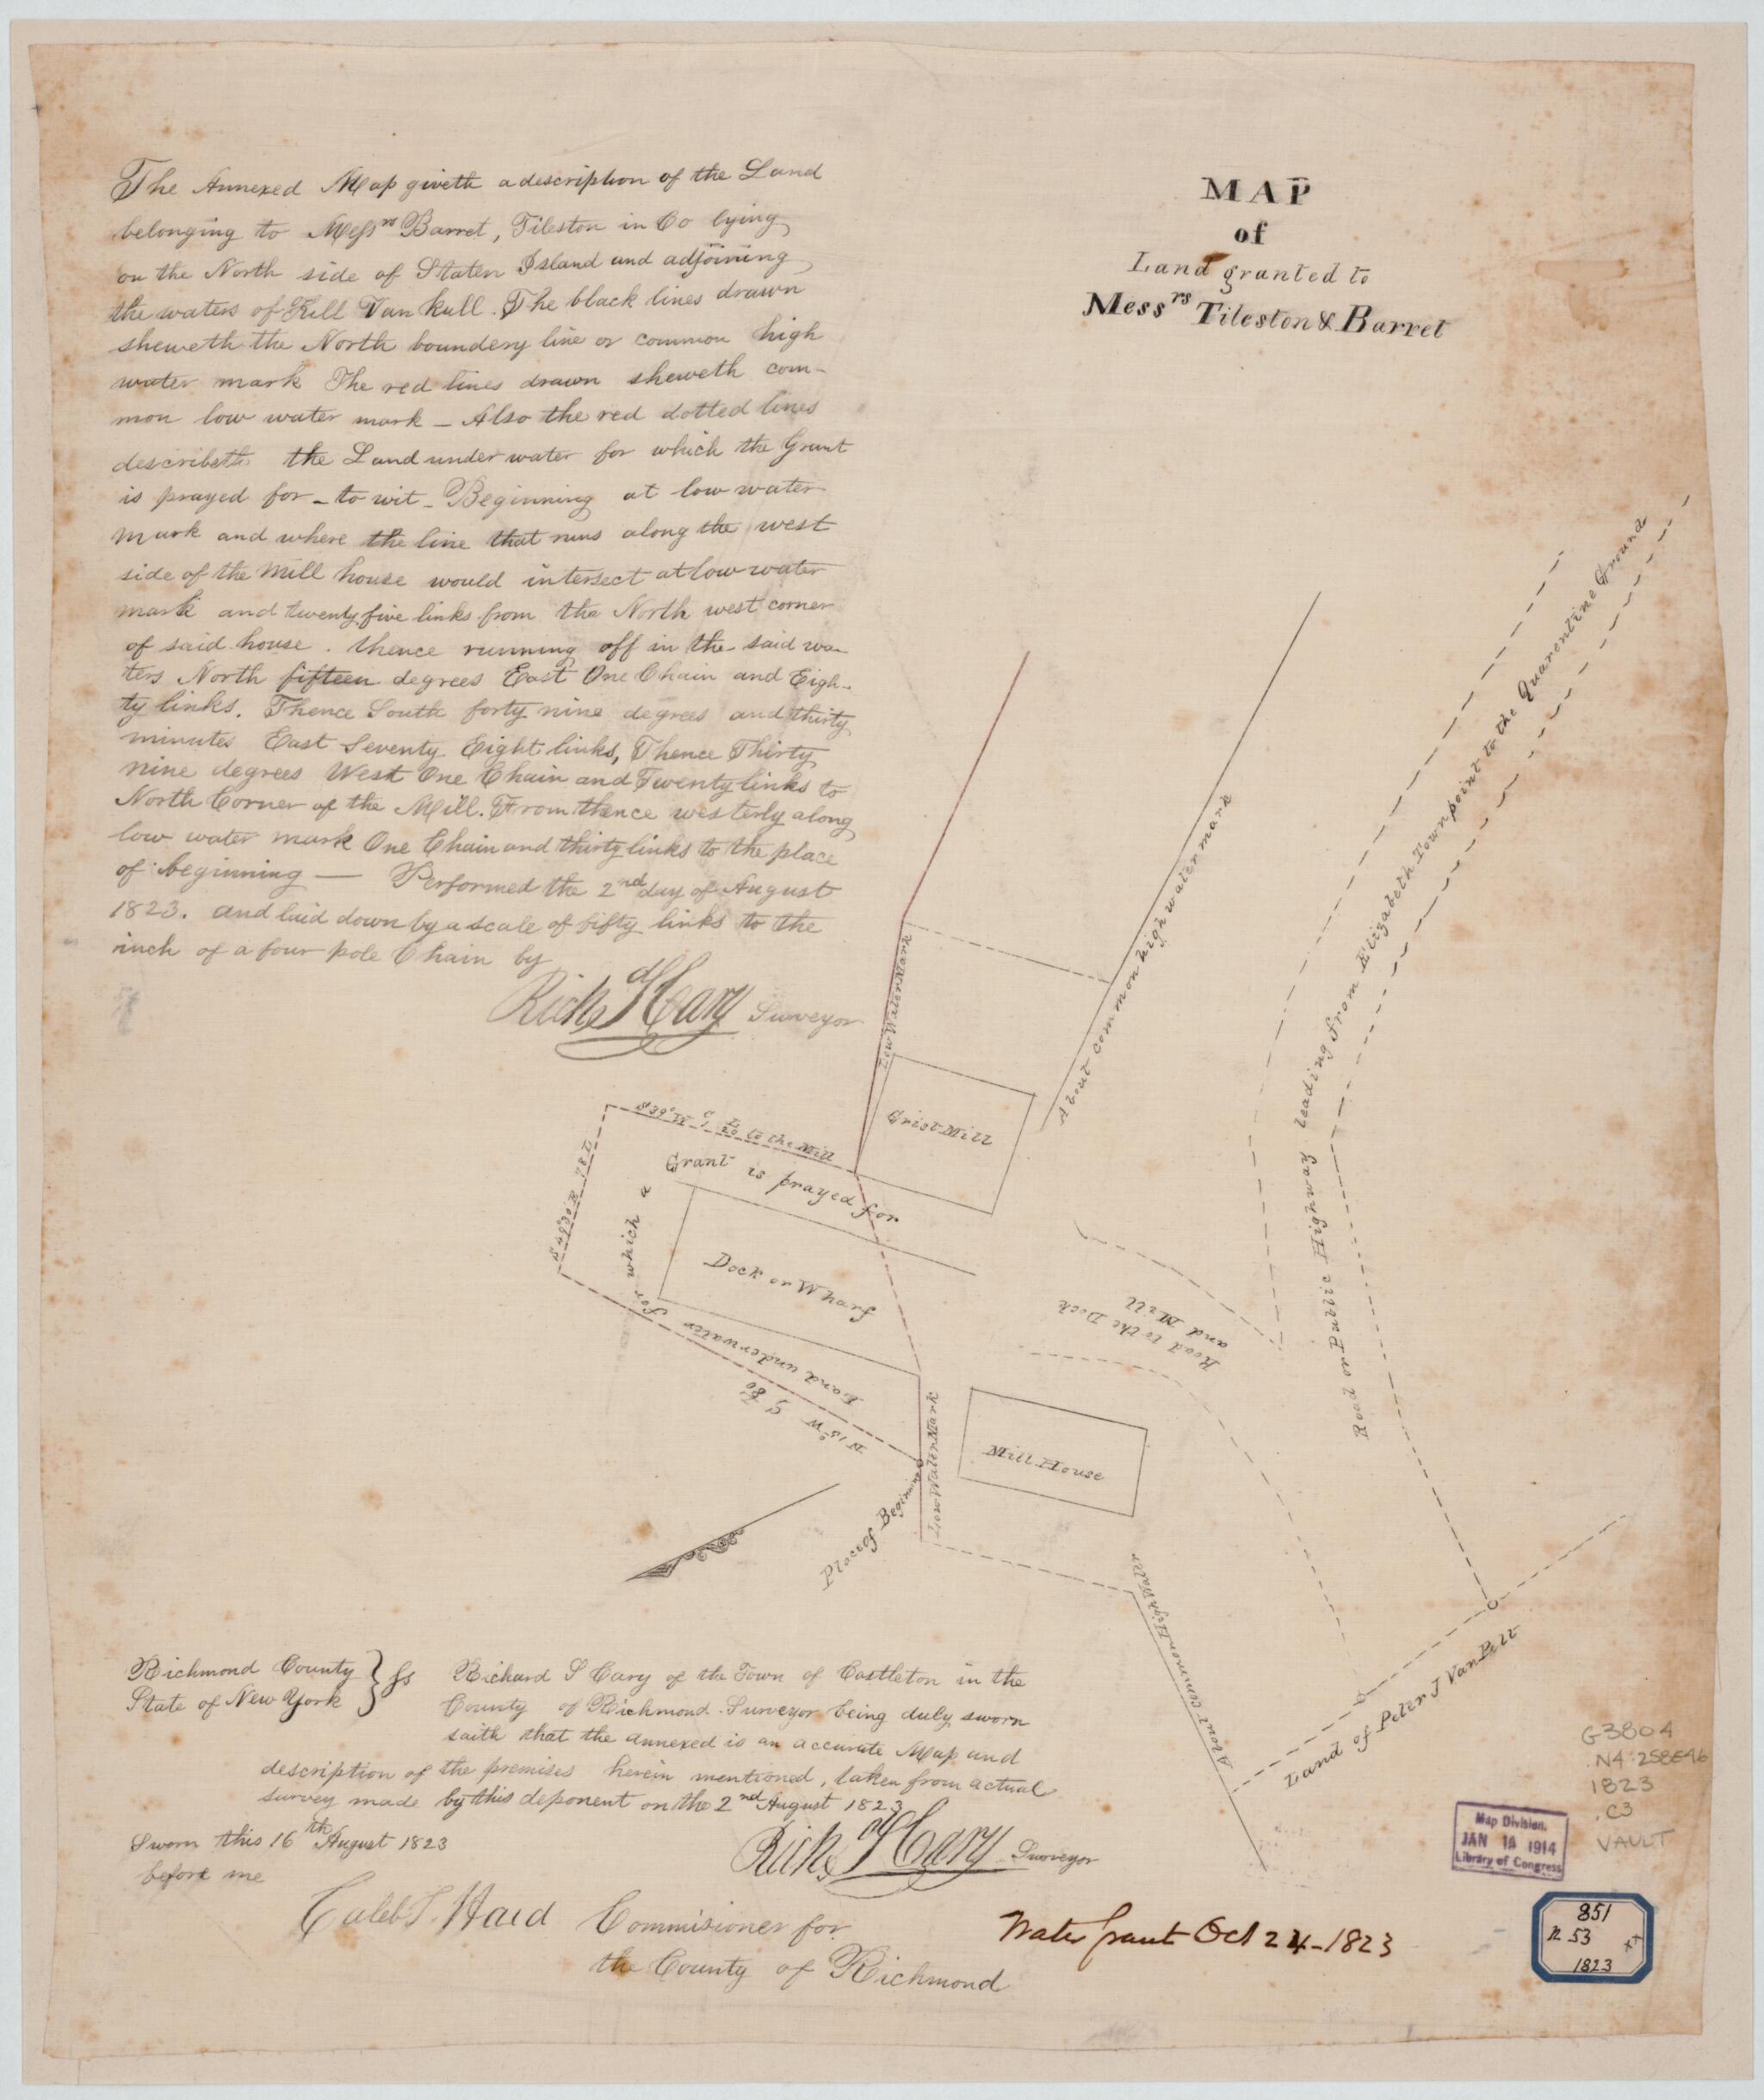 The Annexed Map giveth a description of the Land
belonging to Messrs Barret, Tileston in Co lying
on the North side of Staten Island and adjoining
the waters of Kill Van kull. The black lines drawn
sheweth the North boundery line or common high
water mark The red lines drawn sheweth com-
mon low water mark – Also the red dotted lines
describeth the Land under water for which the Grant
is prayed for – to wit – Beginning at low water
mark and where the line that runs along the west
side of the Mill house would intersect at low water
mark and twenty five links from the North west corner
of said house. thence running off in the said wa-
ters North fifteen degrees East One Chain and Eigh-
ty links. Thence South forty nine degrees and thirty
minutes East Seventy Eight links, Thence Thirty
nine degrees West One Chain and Twenty links to
North Corner of the Mill. From thence westerly along
low water mark One Chain and thirty links to the place
of beginning — Performed the 2nd day of August
1823. and laid down by a scale of fifty links to the
inch of a four pole Chain by
Richd S Cary Surveyor
MAP
of
Land granted to
Messrs Tileston & Barret
Low Water Mark
About common high water mark
Road or Public Highway leading from Elizabeth Town point to the Quarentine Ground
Grist Mill
S 39° W C 1 L 20 to the Mill
S 49°30' E 78 L
for which a
Grant is prayed for
Dock or Wharf
Land under water
N 15° W C 1 80
Road to the Dock
and Mill
Mill House
Low Water Mark
Place of Begining
About common High Water
Land of Peter J Van Pelt
Richmond County
State of New York } Ss
Richard S Cary of the Town of Castleton in the
County of Richmond Surveyor being duly sworn
saith that the annexed is an accurate Map and
description of the premises herein mentioned, taken from actual
survey made by this deponent on the 2nd August 1823
Richd S Cary Surveyor
Sworn this 16th August 1823
before me
Caleb T. Ward Commisioner for
the County of Richmond
Water Grant Oct 24–1823
G3804
.N4:2S8E46
1823
.C3
VAULT
Map Division.
JAN 14 1914
Library of Congress
851
n 53
1823
++